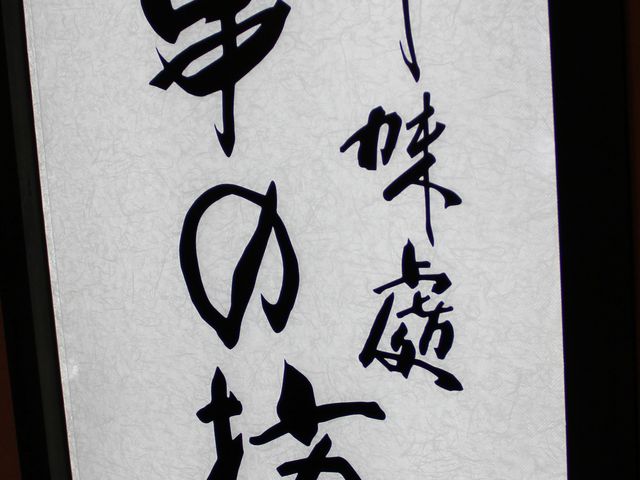 味處
串の坊